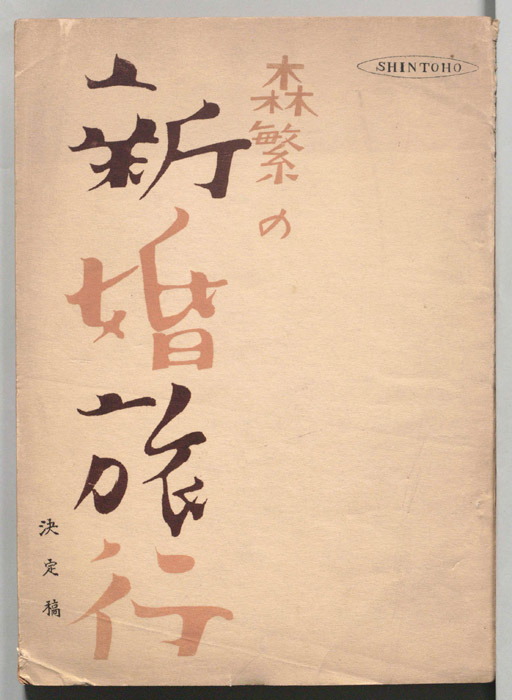 SHINTOHO
森繁の
新婚旅行
決定稿